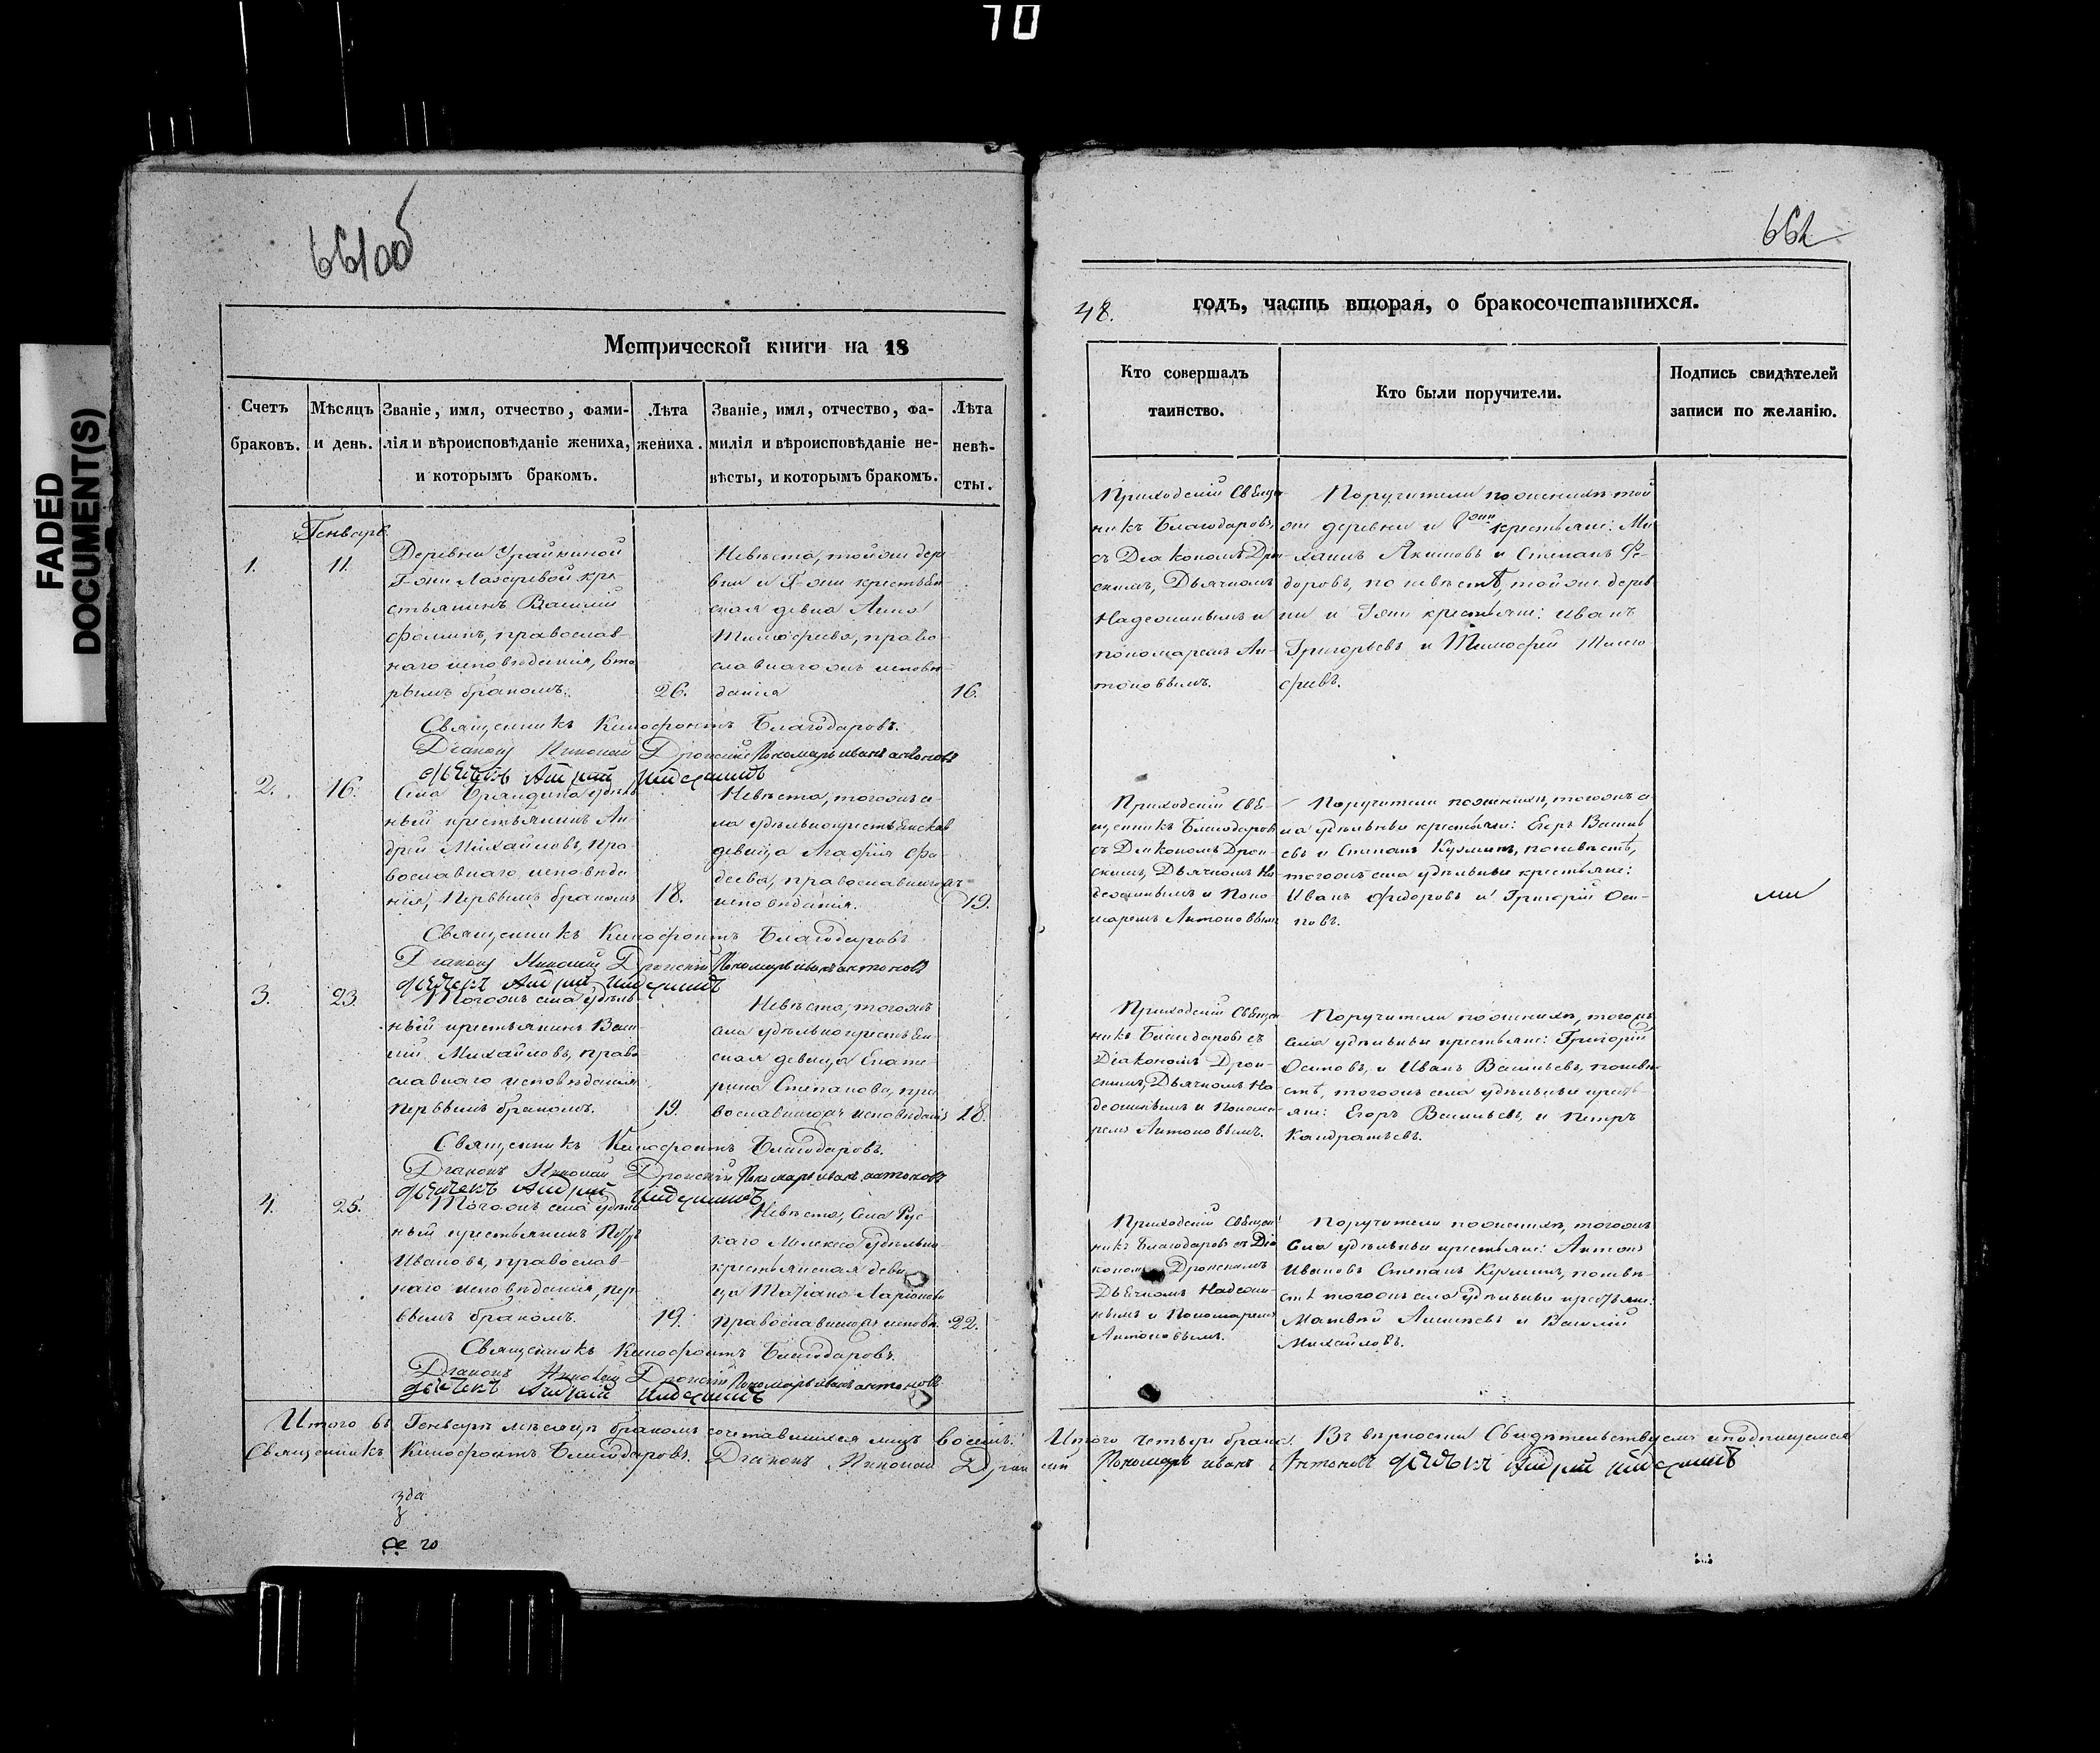 70
FADED
DOCUMENT(S)
661об
Метрической книги на 18
Счетъ браковъ.
Мѣсяцъ и день.
Званіе, имя, отчество, фами-
лія и вѣроисповѣданіе жениха,
и которымъ бракомъ.
Лѣта жениха.
Званіе, имя, отчество, фа-
милія и вѣроисповѣданіе не-
вѣсты, и которымъ бракомъ.
Лѣта невѣ-
сты.
Генварь
1.
11.
Деревни Урайкиной
Г-жи Лазаревой кре-
стьянинъ Василій
Фоминъ, православ-
наго исповѣданія, вто
рымъ бракомъ.
26.
Невѣста, тойже дере
вни и Г-жи крестьян
ская девка Анна
Тимофѣева, право
славнагожъ исповѣ-
данія
16.
Священникъ Кинофонтъ Благодаровъ.
Діаконъ Николай Дронскій Пономарь иванъ антоновъ
2.
16.
Села Бряндина удѣль
ный крестьянинъ Ан
дрей Михайловъ, Пра
вославнаго исповѣда
нія, Первымъ бракомъ
18.
Невѣста, тогожъ се
ла удѣльнокрестьянская
девица Агафія Фа
деева, православнагожъ
исповѣданія.
19.
Священникъ Кинофонтъ Благодаровъ
Діаконъ Николай Дронскій Пономарь иванъ антоновъ
3.
23
Тогожъ села удѣль
ный крестьянинъ Васи
лій Михайловъ, право
славнаго исповѣданія
первымъ бракомъ.
19.
Невѣста, тогожъ
села удѣльнокрестьян
ская девица Екате
рина Степанова, пра
вославнагожъ исповѣданія
18.
Священникъ Кинофонтъ Благодаровъ.
Діаконъ Николай Дронскій Пономарь иванъ антоновъ
4.
25.
Тогожъ села удѣль
ный крестьянинъ Петръ
Ивановъ, православ-
наго исповѣданія, пер
вымъ бракомъ.
19.
Невѣста, Села Рус
каго Мелекеса удѣльно
крестьянская деви
ца Татіана Ларіонова
православнагожъ исповѣ.
22.
Священникъ Кинофонтъ Благодаровъ.
Діаконъ Николай Дронскій Пономарь иванъ антоновъ
Итого въ Генварѣ мѣсяцѣ бракомъ сочетавшихся лицъ восемь.
Священникъ Кинофонтъ Благодаровъ. Діаконъ Николай Дрон
662
48.
годъ, часть вторая, о бракосочетавшихся.
Кто совершалъ
таинство.
Кто были поручители.
Подпись свидѣтелей
записи по желанію.
Приходскій Священ
никъ Благодаровъ,
съ Діакономъ Дрон
скимъ, Дьячкомъ
Надеждинымъ и
пономаремъ Ан-
тоновымъ.
Поручители по женихѣ той
же деревни и Г-жи крестьяне: Ми
хаилъ Акимовъ и Степанъ Фе-
доровъ, по невѣстѣ, тойже дерев
ни и Г-жи крестьяне: Иванъ
Григорьевъ и Тимофей Тимо
фѣевъ.
Приходскій Свя-
щенникъ Благодаровъ
съ Діакономъ Дрон-
скимъ, Дьячкомъ На
деждинымъ и Поно
маремъ Антоновымъ
Поручители по женихѣ, тогожъ се
ла удѣльные крестьяне: Егоръ Василь
евъ и Степанъ Кузминъ, по невѣстѣ,
тогожъ села удѣльные крестьяне:
Иванъ Федоровъ и Григорій Оси-
повъ.
Приходскій Священ
никъ Благодаровъ съ
Діакономъ Дрон-
скимъ, Дьячкомъ На
деждинымъ и Понома
ремъ Антоновымъ.
Поручители по женихѣ, тогожъ
села удѣльные крестьяне: Григорій
Осиповъ, и Иванъ Васильевъ, по невѣ-
стѣ, тогожъ села удѣльные кресть-
яне: Егоръ Васильевъ, и Петръ
Кандратьевъ.
Приходскій Священ
никъ Благодаровъ съ Діа
кономъ Дронскимъ
Дьячкомъ Надежди-
нымъ и Пономаремъ
Антоновымъ.
Поручители по женихѣ, тогожъ
Села удѣльные крестьяне: Антонъ
Ивановъ Степанъ Кузминъ, по невѣ-
стѣ тогожъ села удѣльные крестьяне:
Матвѣй и Василій
Михайловъ.
Итого четыре брака. Въ вѣрности Свидѣтельствуемъ и подписуемся
скій Пономарь иванъ Антоновъ